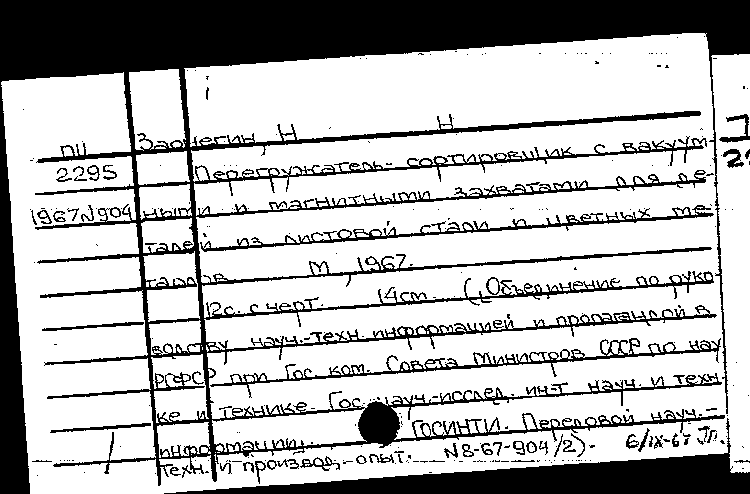 ПЦ Заонегин, Н Н
2295 Перегружатель-сортировщик с вакуум-
1967 N904 ными и магнитными захватами для де-
талей из листовой стали и цветных ме-
таллов. М, 1967.
12с. с черт. 14см. (Объединение по руко-
водству науч.-техн. информацией и пропагандой в
РСФСР при Гос. ком. Совета Министров СССР по нау
ке и технике. Гос. науч.-исслед. ин-т науч. и техн
информации. ГОСИНТИ. Передовой науч.-
техн. и производ.-опыт. N8-67-904/2).- 6/IX-67 Лп.